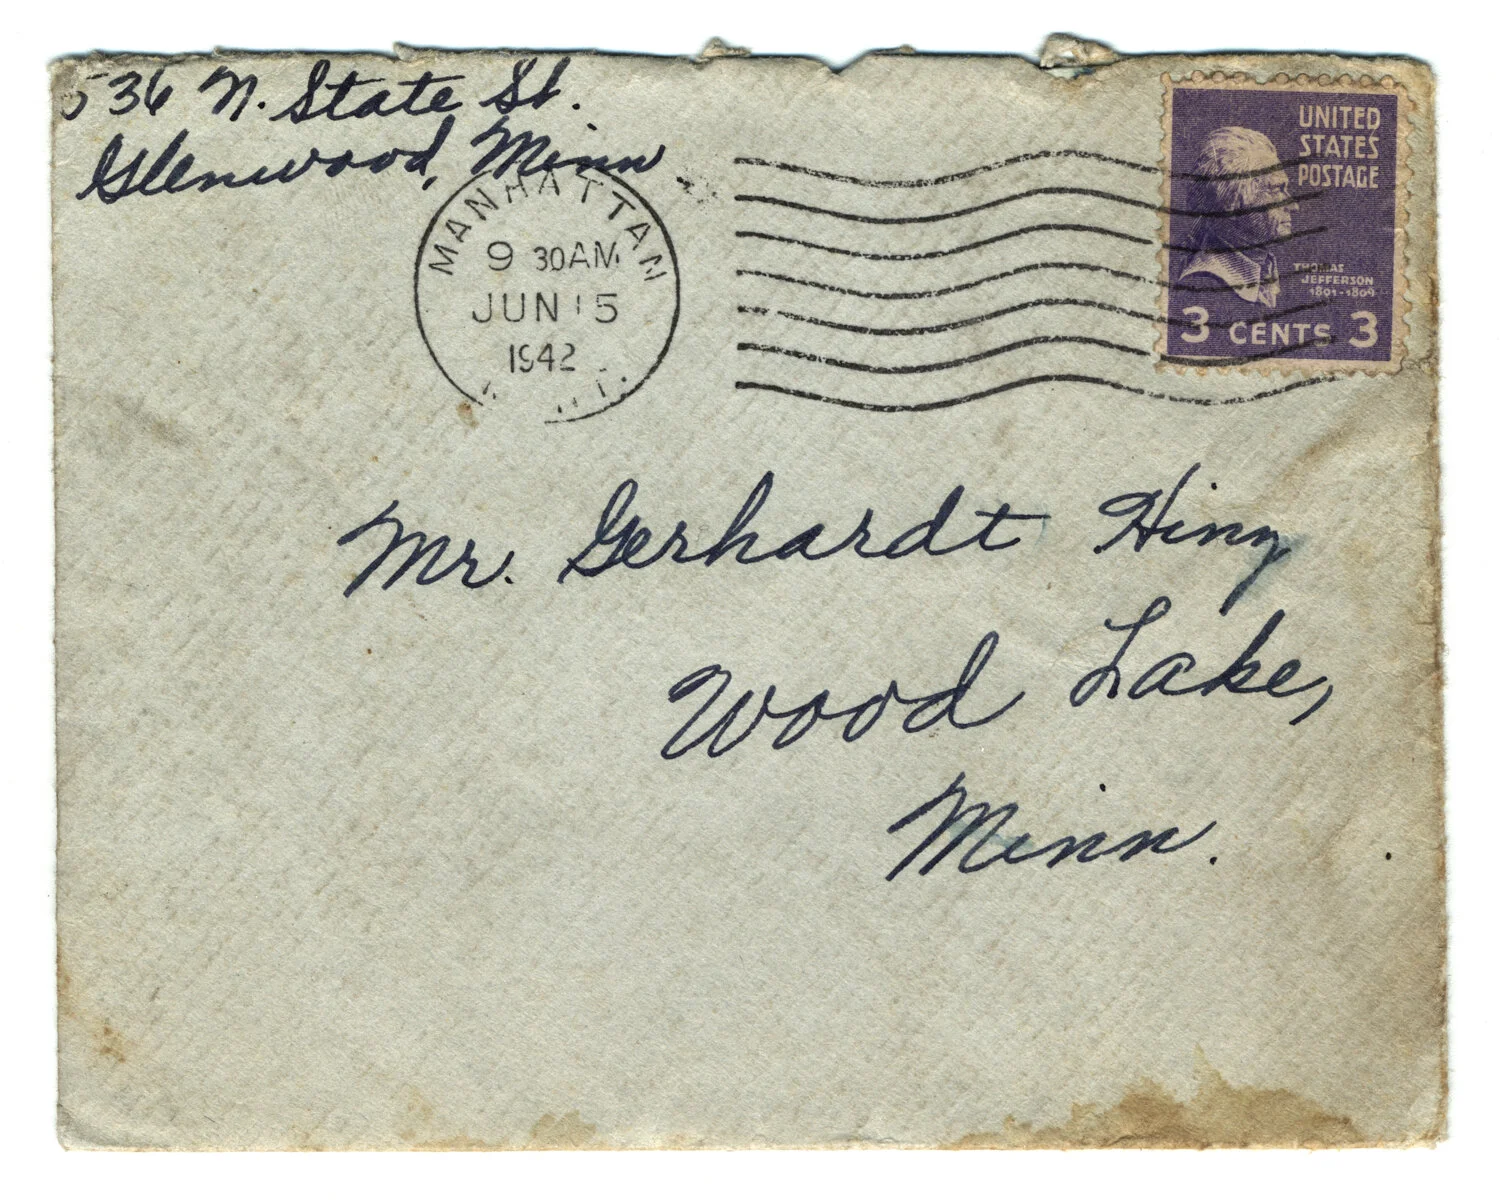 536 N. State St.
Glenwood, Minn
MANHATTAN
9 30AM
JUN 15
1942
UNITED
STATES
POSTAGE
THOMAS
JEFFERSON
1801-1809
3 CENTS 3
Mr. Gerhardt
Wood Lake,
Minn.